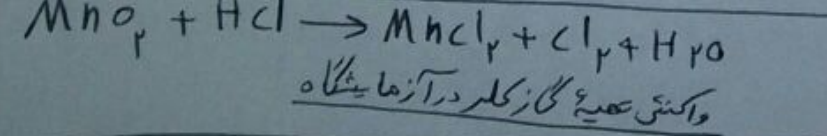 MnO۲ + HCl → MnCl۲ + Cl۲ + H۲O
واکنش تهیهٔ گاز کلر در آزمایشگاه